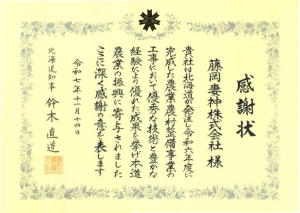 感謝状
藤岡妻神株式会社 様
貴社は北海道が発注し令和六年度に
完成した農業農村整備事業の
工事において優秀な技術と豊かな
経験により優れた成果を挙げ本道
農業の振興に寄与されました
ここに深く感謝の意を表します
令和七年十一月十四日
北海道知事 鈴木直道